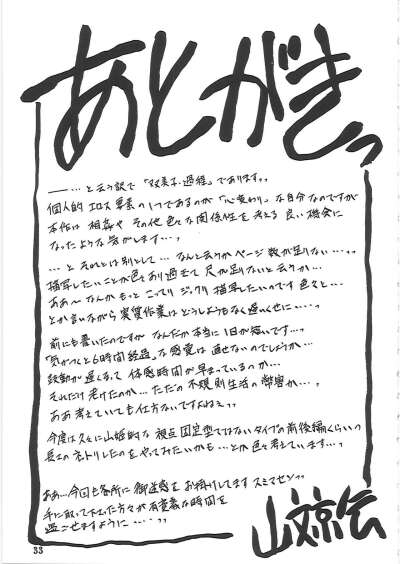 あとがきっ
――…と云う訳で「双美子・過程」であります,,
個人的エロス要素の1つであるのが「心変わり」な自分なのですが
本作は相姦やその他色々な関係性を考える良い機会に
なったような気がします…,
…とそれとは別として…なんと云うかページ数が足りない…,,
描写したいことが色々あり過ぎて尺が足りないと云うか…
ああ～なんかもっとこってりジックリ描写したいのです色々と…
とか言いながら実質作業はどうしようもなく遅いくせに…,
前にも書いたのですがなんだか本当に1日が短いです…,
「気がつくと6時間経過」な感覚は直せないのでしょうか…
鼓動が遅くなって体感時間が早まっているのか…
それだけ老けたのか…ただの不規則生活の弊害か…,
ああ考えていても仕方ないですよねぇ,,
今度は久々に山姫的な視点固定型ではないタイプの前後編くらいの
長さのネトリしたのをやってみたいかも…とか色々考えています…,
ああ…今回も各所に御迷惑をお掛けしてますスミマセン,,
手に取って下さった方々が有意義な時間を
過ごせますように…,,
山文京伝
33